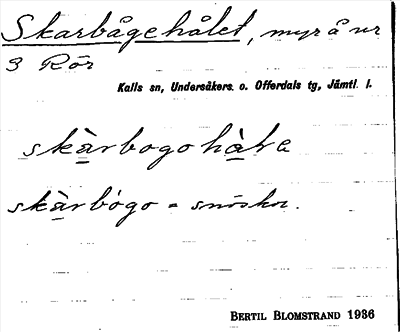 Skarbågehålet, myr å nr
3 Rör
Kalls sn, Undersåkers o. Offerdals tg, Jämtl. l.
skàrbogohàḷa
skàrbógo = snöskor.
BERTIL BLOMSTRAND 1936